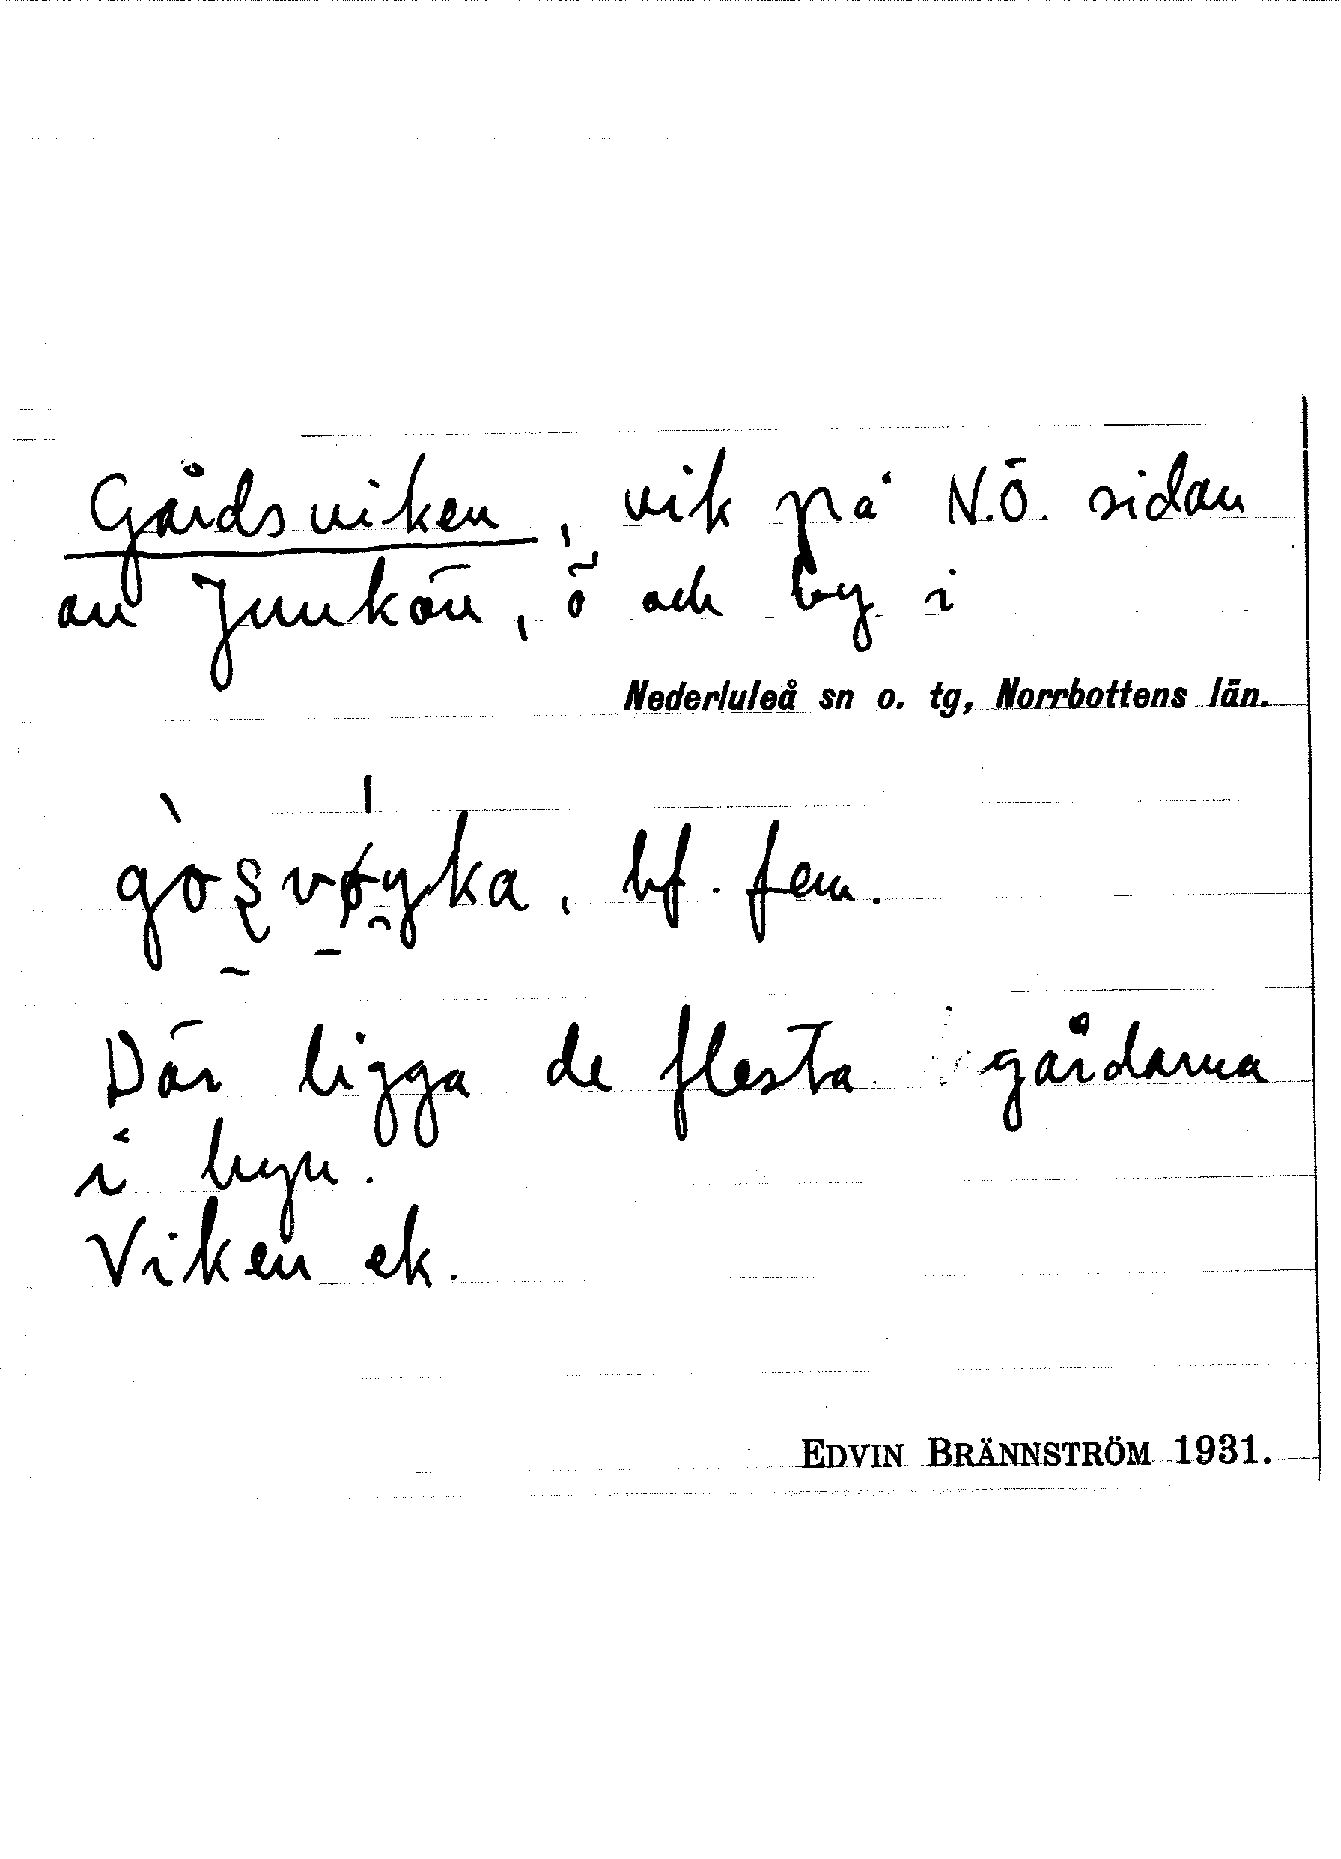 Gårdsviken, vik på N.Ö. sidan
av Junkön, ö och by i
Nederluleå sn o. tg, Norrbottens län.
gòʂvǿyka, bf. fem.
Där ligga de flesta gårdarna
i byn.
Viken ek.
EDVIN BRÄNNSTRÖM 1931.